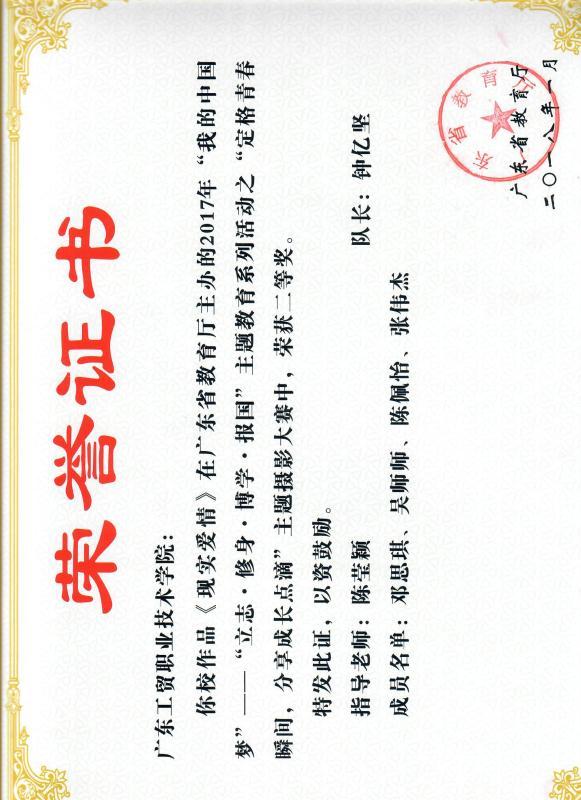 荣誉证书
广东工贸职业技术学院：
你校作品《现实爱情》在广东省教育厅主办的2017年“我的中国
梦”——“立志·修身·博学·报国”主题教育系列活动之“定格青春
瞬间，分享成长点滴”主题摄影大赛中，荣获二等奖。
特发此证，以资鼓励。
指导老师：陈莹颖 队长：钟亿坚
成员名单：邓思琪、吴师师、陈佩怡、张伟杰
广东省教育厅
二〇一八年一月
东省教育